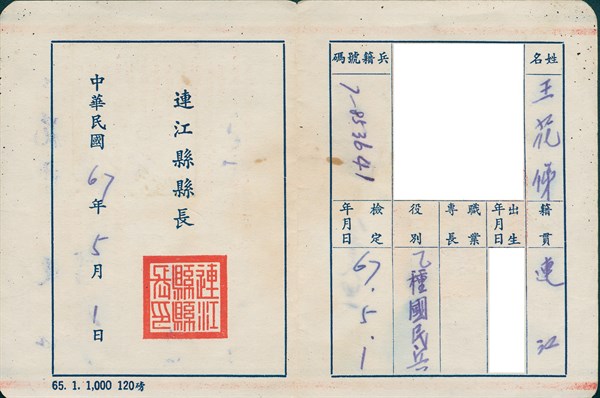 姓名
王花俤
籍貫
連江
出生年月日
職業專長
役別
乙種國民兵
兵籍號碼
7-853641
檢定年月日
67.5.1
連江縣縣長
連江縣縣長印
中華民國67年5月1日
65. 1. 1,000 120磅